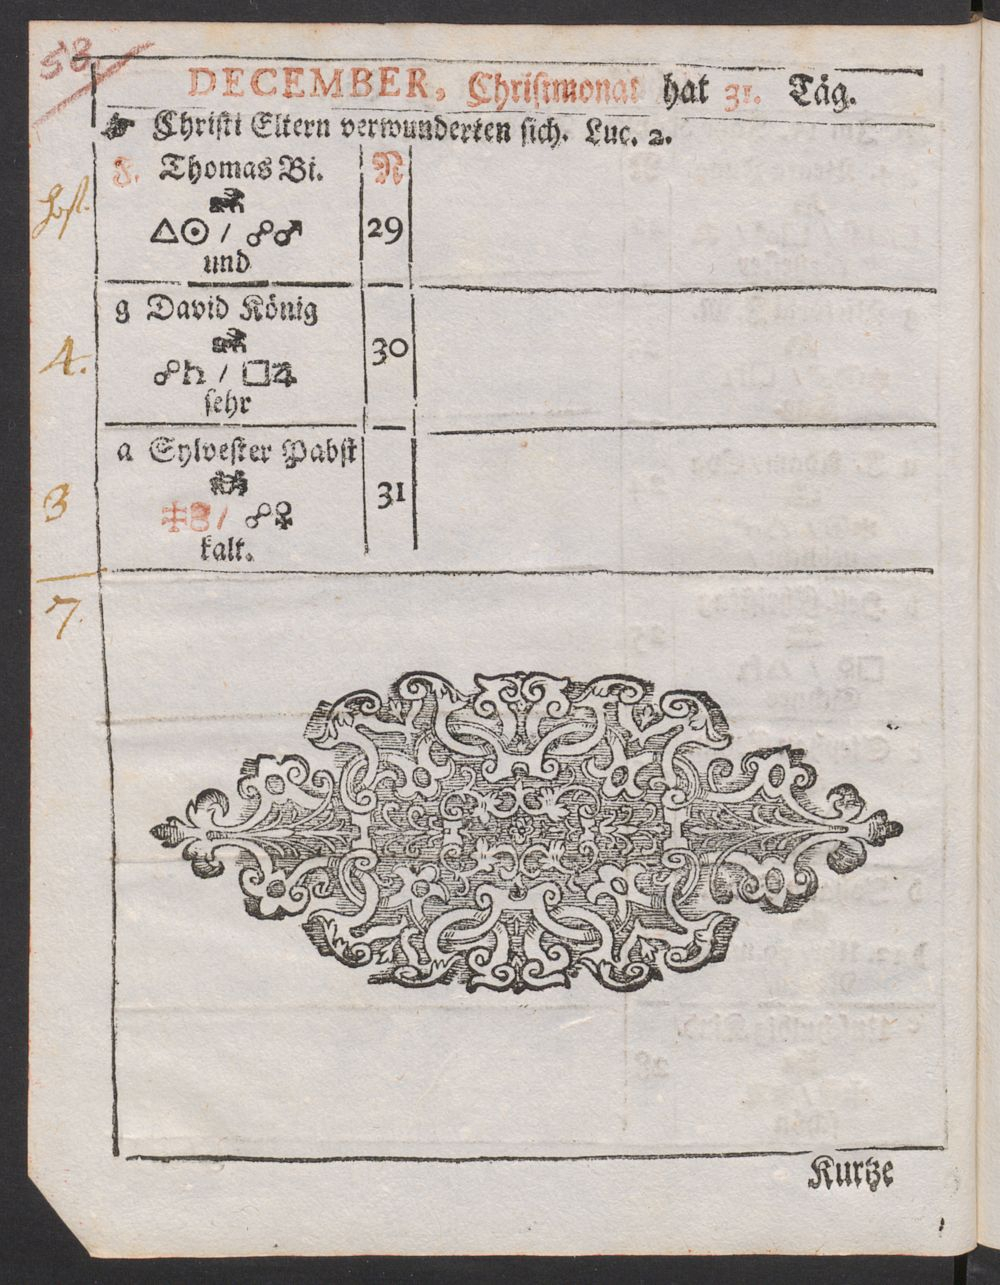 58.
DECEMBER, Christmonat hat 31. Täg.
☛ Christi Eltern verwunderten sich. Luc. 2.
F. Thomas Bi. N
△☉ / ☍♂ 29
und
g David König
4. 30
☍♄ / □♃
sehr
a Sylvester Pabst
3 31
/ ☍♀
kalt.
7.
Kurtze